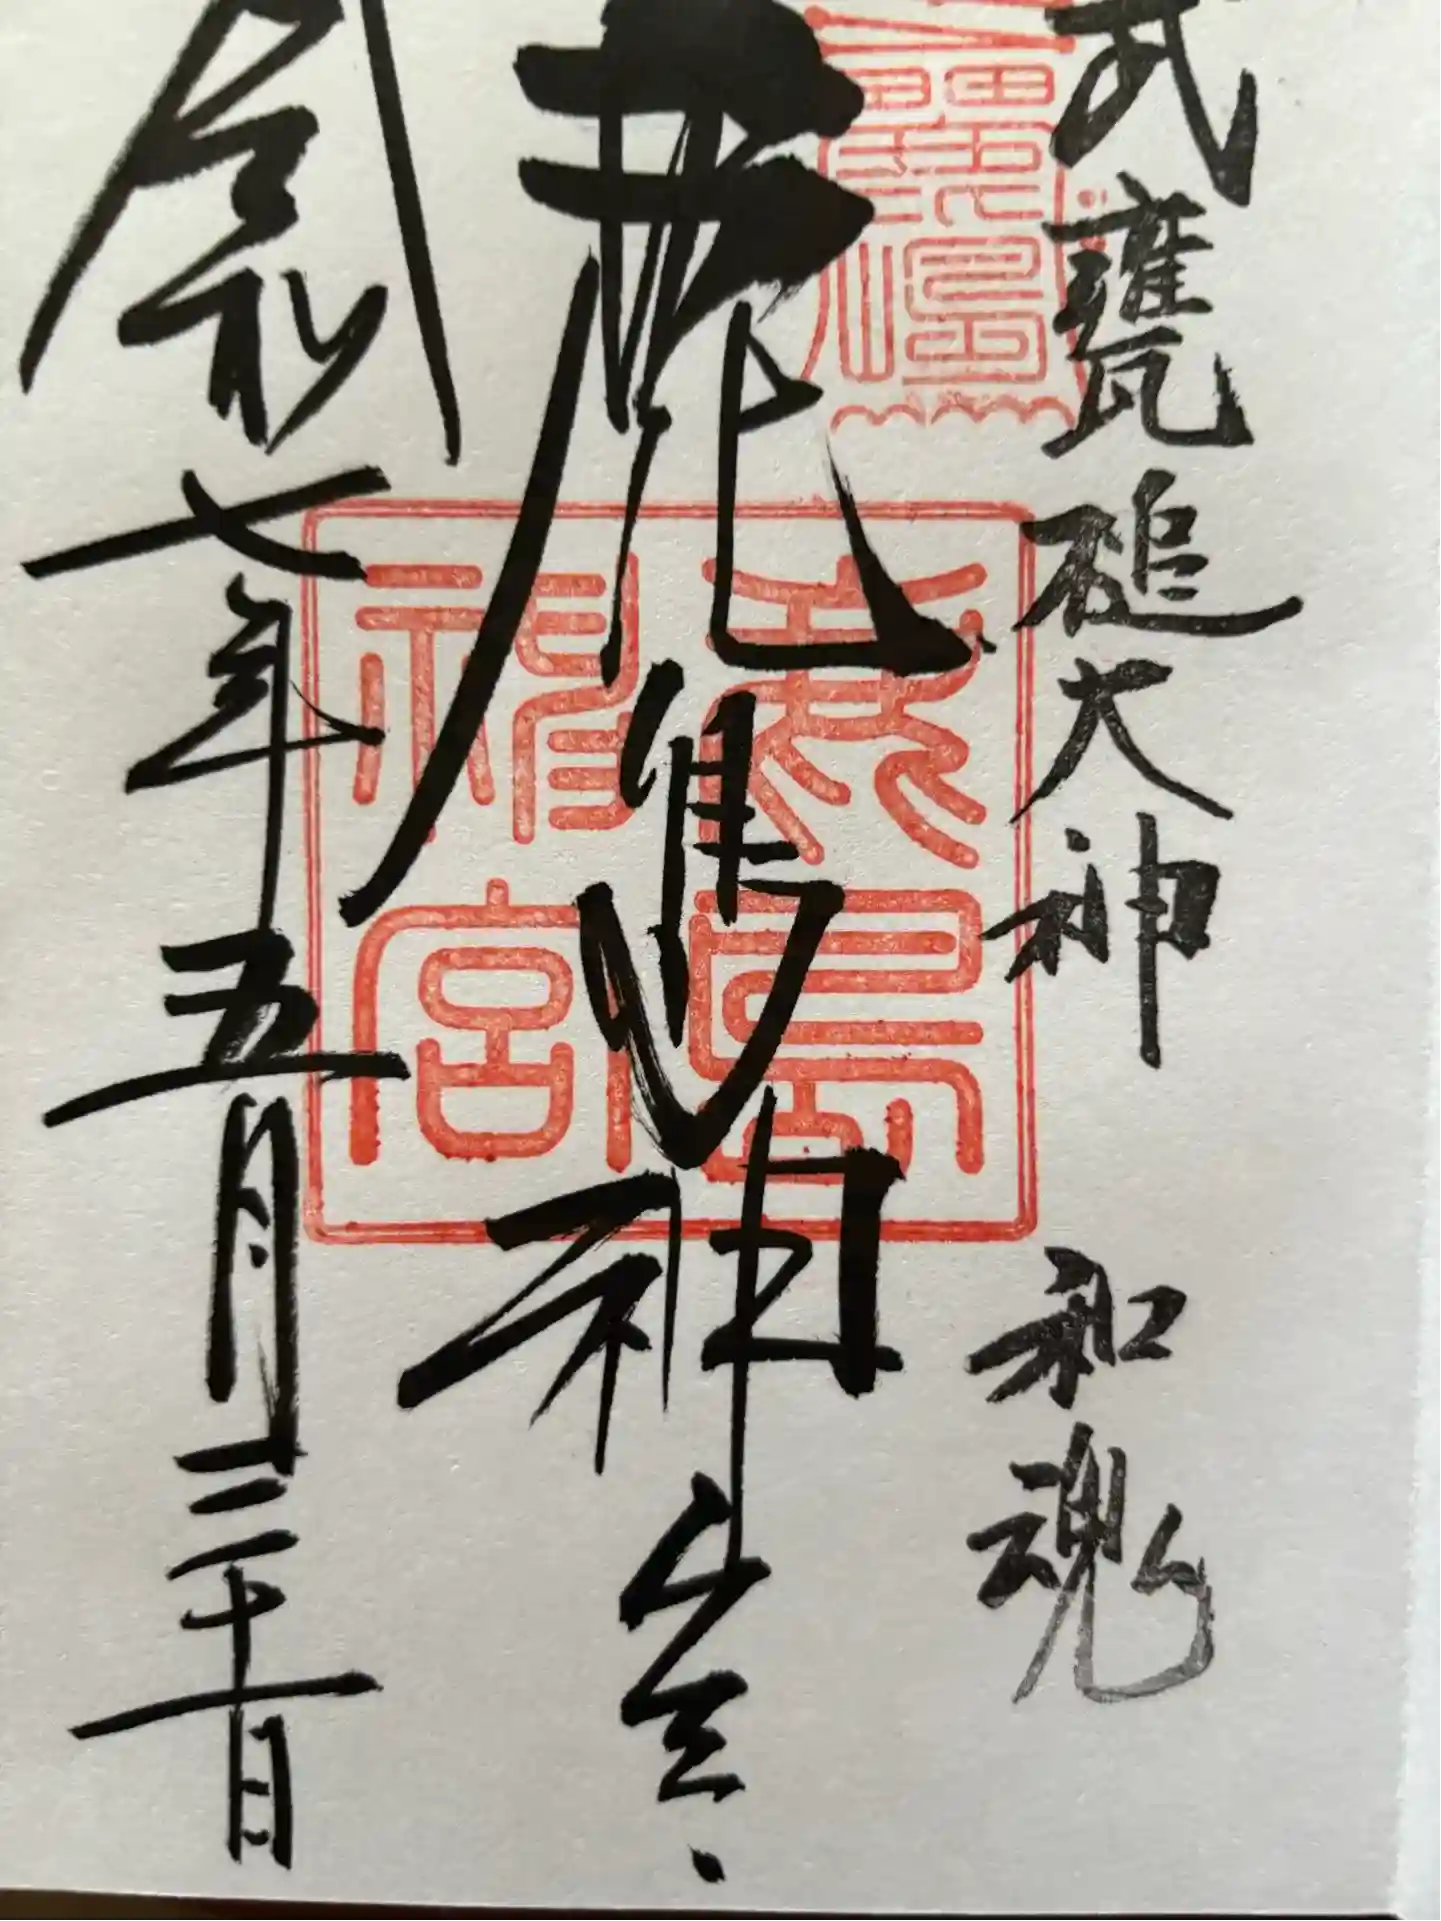 武甕槌大神 和魂
鹿島神宮
令和七年五月三十一日
鹿島
神宮